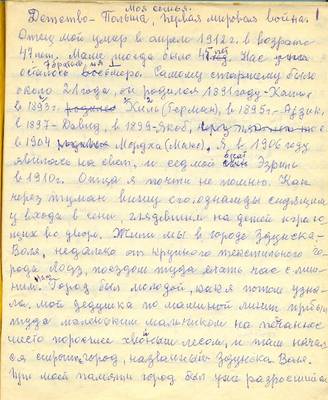 Моя семья.
Детство - Польша, первая мировая война.
Отец мой умер в апреле 1912 г. в возрасте
47 лет. Маме тогда было 4 лет. Нас
осталось восьмеро. Самому старшему было
около 21 года, он родился 1891 году - Хаим
в 1893 г. Хиль (Герман), в 1895 г - Айзик,
в 1897 - Давид, в 1899 - Якоб,
в 1904 Мордка (Макс). Я, в 1906 году
явилась на свет, и седьмой брат Эзриль
в 1910 г. Отца я почти не помню. Как
через туман вижу его однажды сидящим
у входа в сени, глядевшим на детей играю-
щих во дворе. Жили мы в городе Здуньска-
Воля, недалеко от крупного текстильного го-
рода Лодз, поездом туда ехать час с лиш-
ним. Город был молодой, как я потом узна-
ла, мой дедушка по маминой линии прибыл
туда маленьким мальчиком на
место поросшее хвойным лесом, и там начал-
ся строить город, названный Здуньска Воля.
При моей памяти город был уже разросшийся